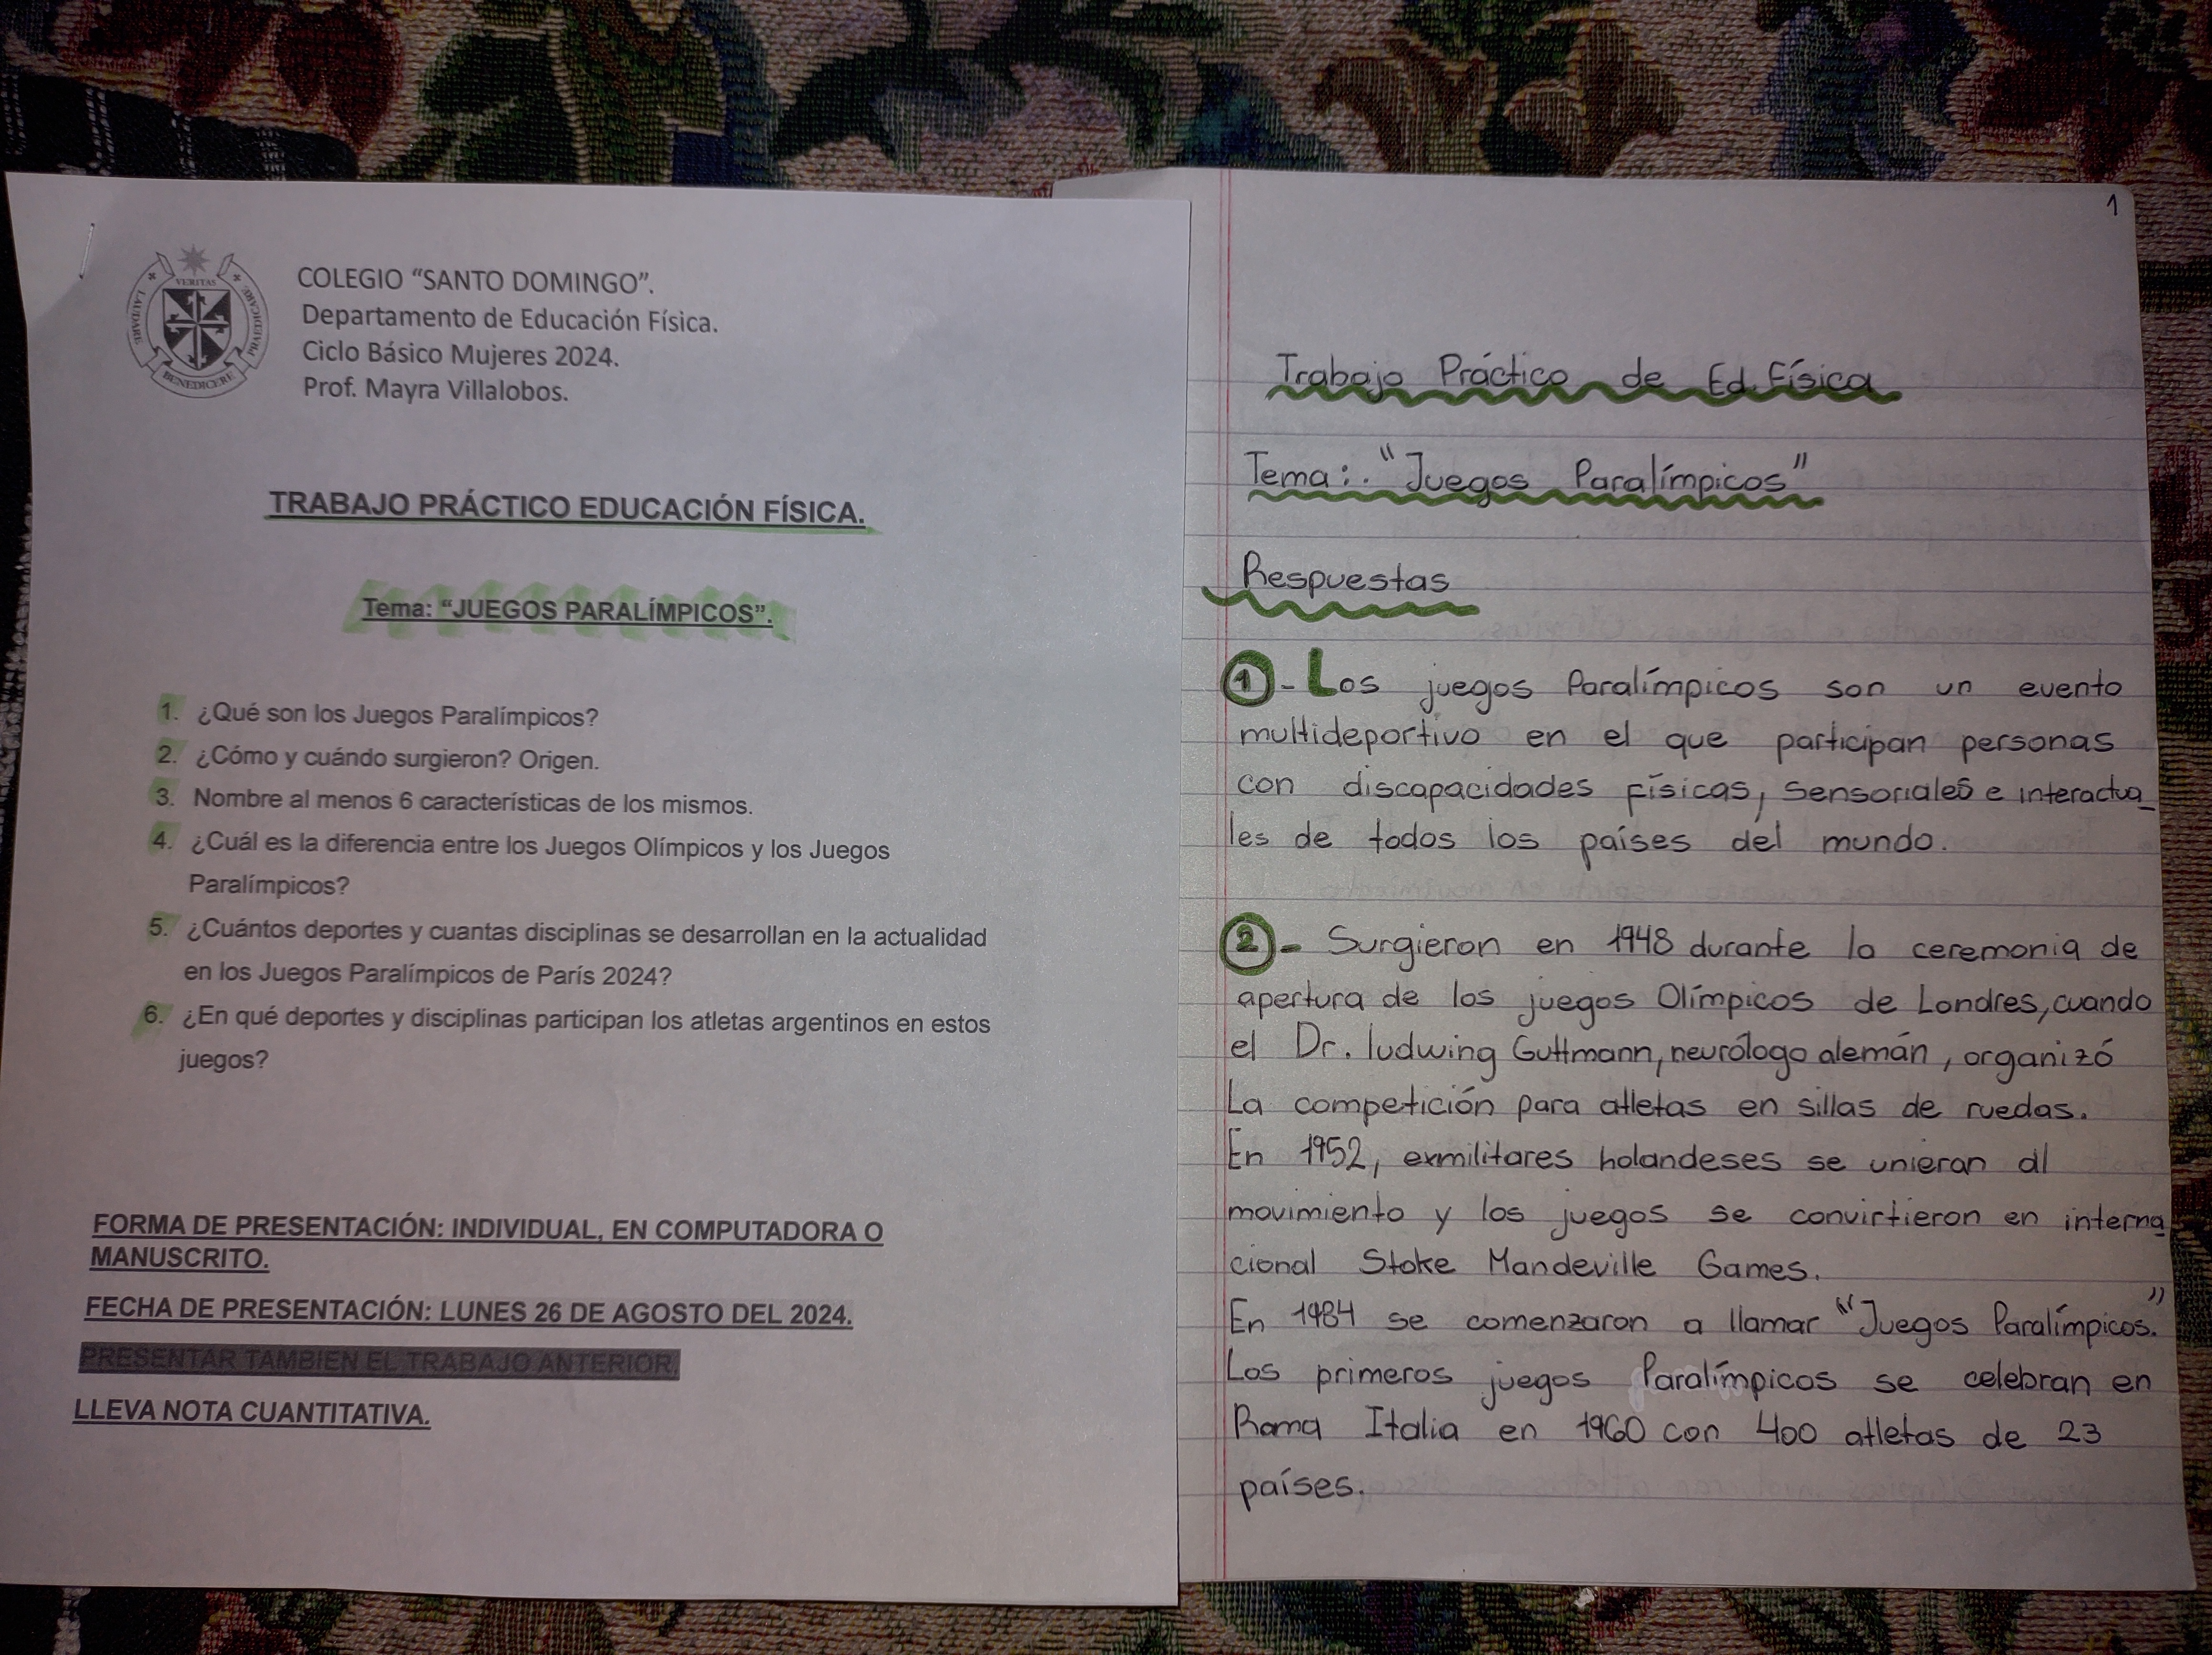 VERITAS
LAUDARE
PRAEDICARE
BENEDICERE
COLEGIO “SANTO DOMINGO”.
Departamento de Educación Física.
Ciclo Básico Mujeres 2024.
Prof. Mayra Villalobos.
TRABAJO PRÁCTICO EDUCACIÓN FÍSICA.
Tema: “JUEGOS PARALÍMPICOS”.
1. ¿Qué son los Juegos Paralímpicos?
2. ¿Cómo y cuándo surgieron? Origen.
3. Nombre al menos 6 características de los mismos.
4. ¿Cuál es la diferencia entre los Juegos Olímpicos y los Juegos
Paralímpicos?
5. ¿Cuántos deportes y cuantas disciplinas se desarrollan en la actualidad
en los Juegos Paralímpicos de París 2024?
6. ¿En qué deportes y disciplinas participan los atletas argentinos en estos
juegos?
FORMA DE PRESENTACIÓN: INDIVIDUAL, EN COMPUTADORA O
MANUSCRITO.
FECHA DE PRESENTACIÓN: LUNES 26 DE AGOSTO DEL 2024.
PRESENTAR TAMBIEN EL TRABAJO ANTERIOR.
LLEVA NOTA CUANTITATIVA.
1
Trabajo Práctico de Ed. Física
Tema:. “Juegos Paralímpicos”
Respuestas
1 - Los juegos Paralímpicos son un evento
multideportivo en el que participan personas
con discapacidades físicas, sensoriales e interactua_
les de todos los países del mundo.
2 - Surgieron en 1948 durante la ceremonia de
apertura de los juegos Olímpicos de Londres, cuando
el Dr. ludwing Guttmann, neurólogo alemán, organizó
La competición para atletas en sillas de ruedas.
En 1952, exmilitares holandeses se unieran al
movimiento y los juegos se convirtieron en interna_
cional Stoke Mandeville Games.
En 1984 se comenzaron a llamar “Juegos Paralímpicos.”
Los primeros juegos Paralímpicos se celebran en
Roma Italia en 1960 con 400 atletas de 23
países.